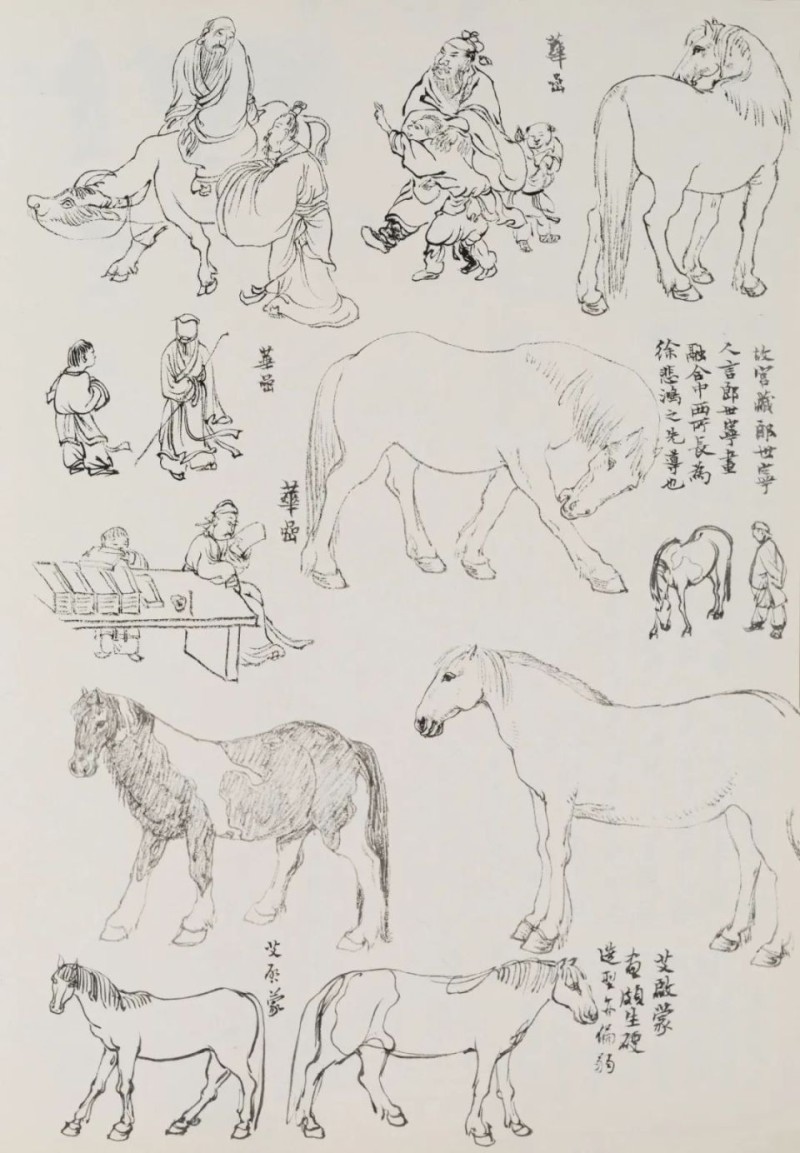 華嵒
故宮藏郎世寧
人言郎世寧畫
融合中西所長為
徐悲鴻之先導也
華嵒
華嵒
艾启蒙
艾啟蒙
畫頗生硬
造型亦偏弱